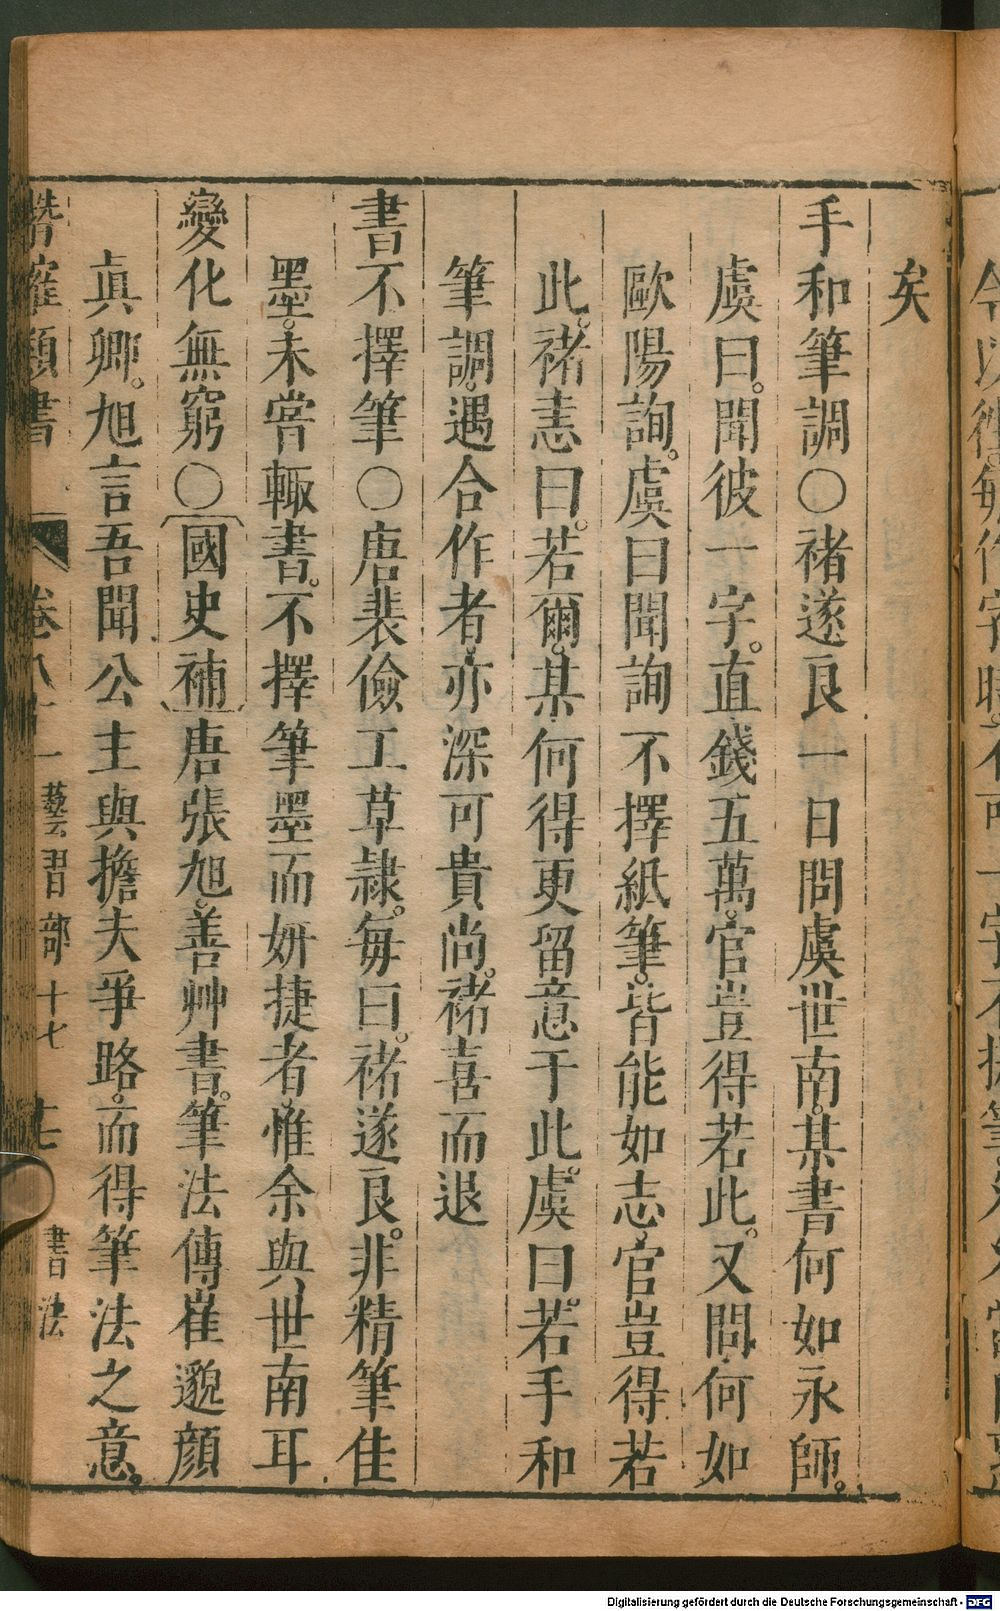 矣
手和筆調〇褚遂良一日問虞世南某書何如永師。
虞曰。聞彼一字。直錢五萬。官豈得若此。又問何如
歐陽詢。虞曰聞詢不擇紙筆。皆能如志官豈得若
此。褚恚曰。若爾。某何得更留意于此。虞曰。若手和
筆調。遇合作者亦深可貴尚。褚喜而退
書不擇筆〇唐裴儉工草隷。每曰。褚遂良。非精筆佳
墨。未甞輙書。不擇筆墨而妍捷者惟余與世南耳
變化無窮〇國史補唐張旭。善艸書。筆法傳崔邈顔
眞卿。旭言吾聞公主與擔夫爭路。而得筆法之意。
類書 卷八十一 藝習部十七 書法
Digitalisierung gefördert durch die Deutsche Forschungsgemeinschaft - DFG